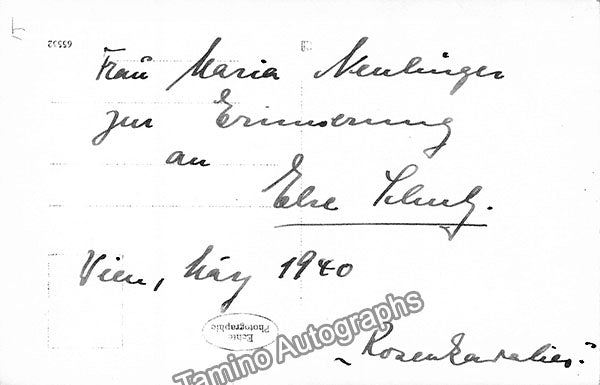 65552
Frau Maria Neulinger
zur Erinnerung
an
Else Schulz.
Wien, März 1940
Echte
Photographie
Tamino Autographs
„Rosenkavalier."